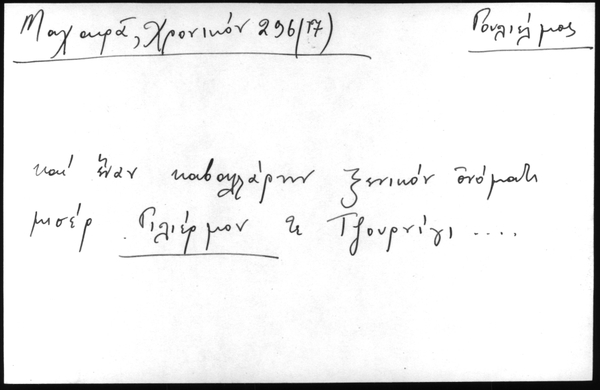 Μαχαιρά, Χρονικόν 296(17) Γουλιέλμος
καί ἕναν καβαλλάρην ξενικόν ὀνόματι
μισέρ Γιλιέρμον τε Τζουρνίγι ....